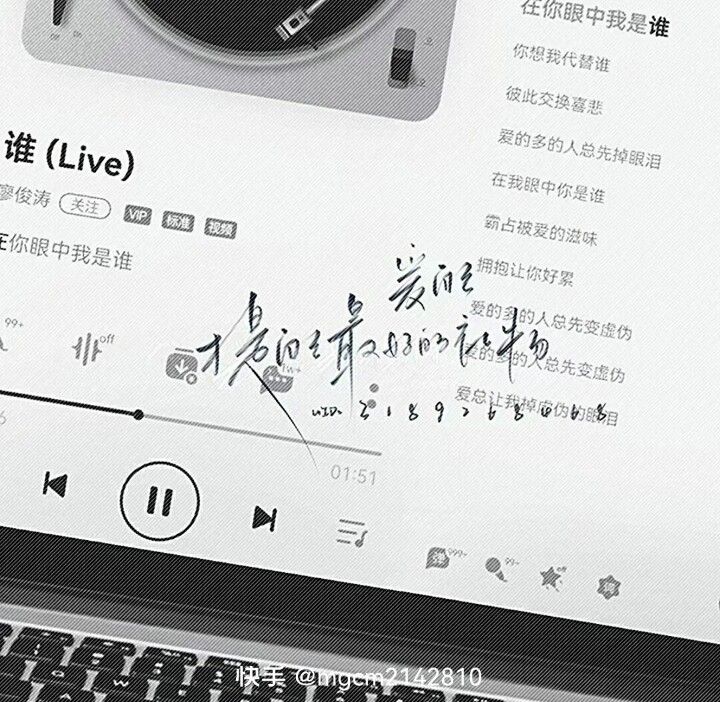 在你眼中我是谁
你想我代替谁
彼此交换喜悲
爱的多的人总先掉眼泪
在我眼中你是谁
霸占被爱的滋味
拥抱让你好累
爱的多的人总先变虚伪
爱的多的人总先变虚伪
爱总让我掉虚伪的眼泪
谁 (Live)
廖俊涛 关注 VIP 标准 视频
在你眼中我是谁
99+
off
1w+
爱的
最好的礼物
01:51
弹 999+
99+
off
词
快手 @mgcm2142810